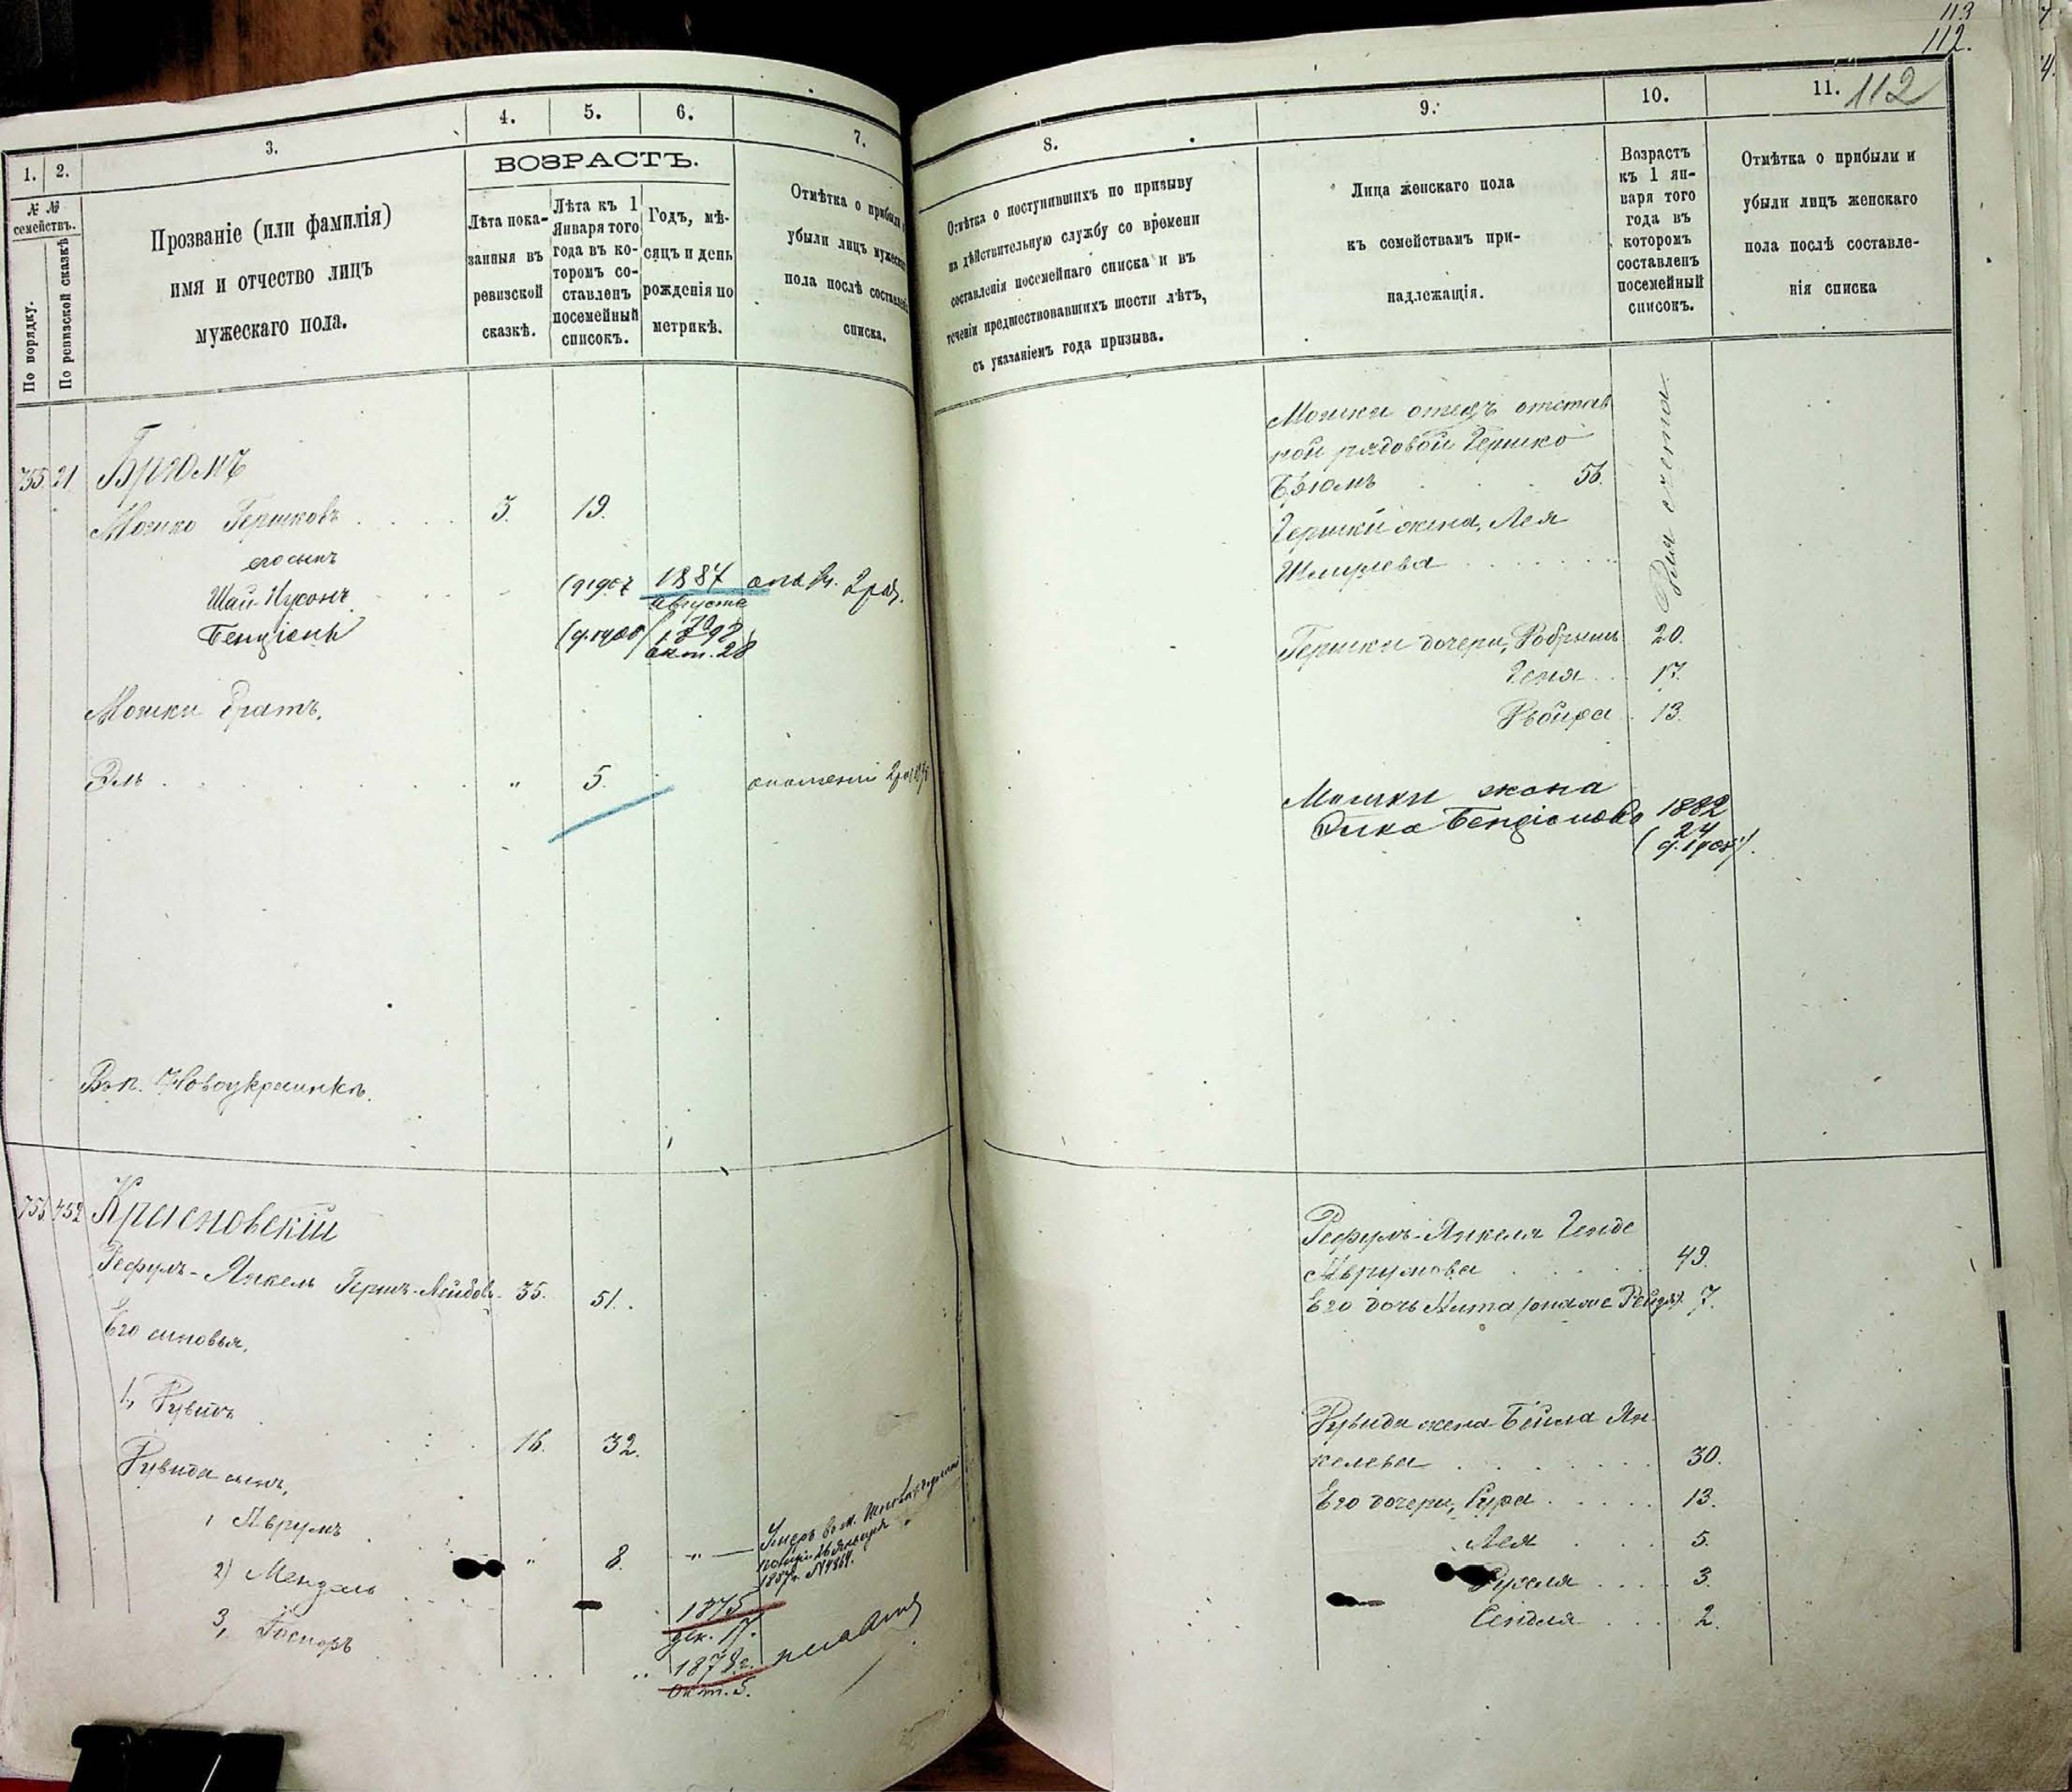 113
112.
112
1.
2.
3.
4.
5.
6.
7.
№ №
семействъ.
По порядку.
По ревизской сказкѣ
Прозваніе (или фамилія)
имя и отчество лицъ
мужескаго пола.
ВОЗРАСТЪ.
Лѣта пока-
занныя въ
ревизской
сказкѣ.
Лѣта къ 1
Января того
года въ ко-
торомъ со-
ставленъ
посемейный
списокъ.
Годъ, мѣ-
сяцъ и день
рожденія по
метрикѣ.
Отмѣтка о прибыли
убыли лицъ мужеск
пола послѣ составле
списка.
755. 21. Брюмъ
Мошко Гершковъ 3. 19.
его сынъ
Шай-Нусонъ 1887
августа
Бенціонъ 1898
окт. 28
Мошки братъ,
Эль " 5.
В п. Новоукраинкѣ.
452 Красновскій
Рефулъ-Янкель Гершъ-Лейбовъ 35. 51.
Его сыновья,
1, Рувинъ 16. 32.
Рувида сынъ,
1 Аврумъ " 8. "
Умеръ
1887г.
2) Мендель 1875
дек. 17.
3, 1878г.
Окт. 5.
8.
9.
10.
11.
Отмѣтка о поступившихъ по призыву
на дѣйствительную службу со времени
составленія посемейнаго списка и въ
теченіи предшествовавшихъ шести лѣтъ,
съ указаніемъ года призыва.
Лица женскаго пола
къ семействамъ при-
надлежащія.
Возрастъ
къ 1 ян-
варя того
года въ
которомъ
составленъ
посемейный
списокъ.
Отмѣтка о прибыли и
убыли лицъ женскаго
пола послѣ составле-
нія списка
Мошки отецъ отстав
ной рядовой Гершко
Брюмъ 56.
Гершки жена, Лея
Шмулева
Гершки дочери, 20.
Геня 17.
Ривка 13.
Мошки жена
Элька Бенціонова 1882
24
Рефулъ-Янкеля Генде
Аврумова 49.
Его дочь Хита (она же Рейзя) 7.
Рувида жена Бейла Ян-
келева 30.
Его дочери, Сура 13.
Лея 5.
Рухля 3.
Сендля 2.